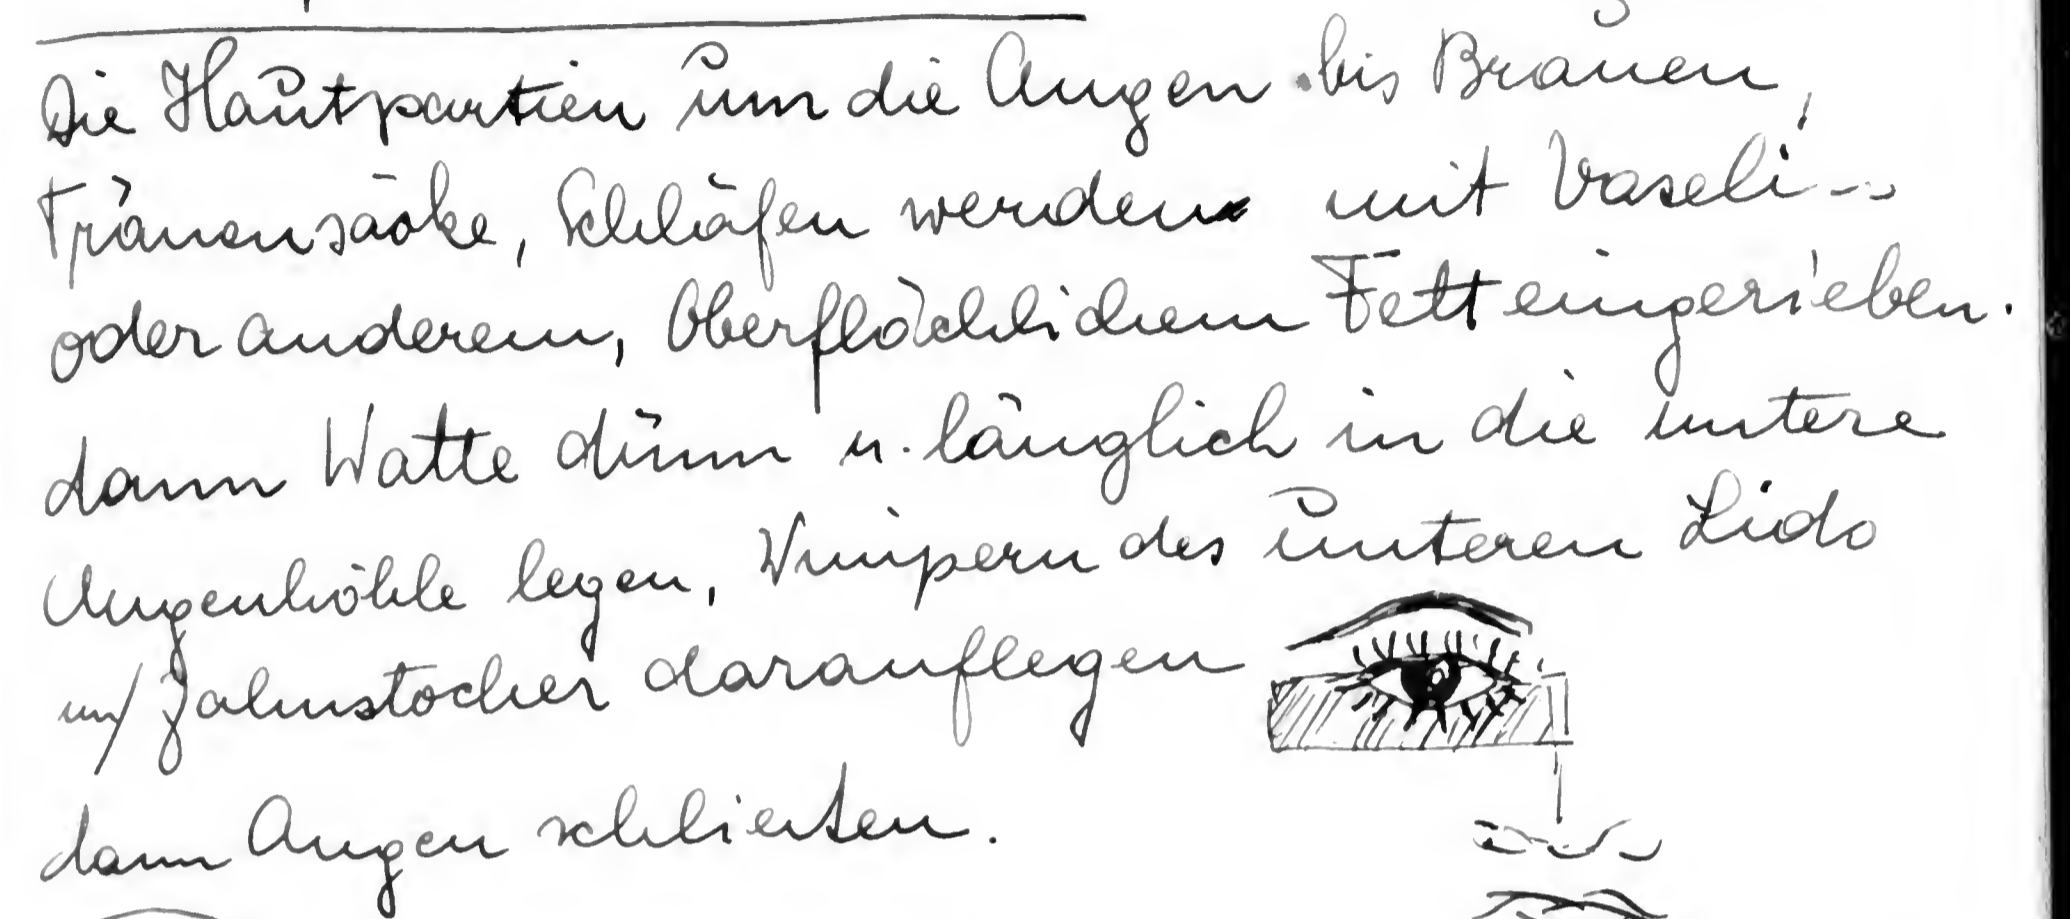 Die Hautpartien um die Augen bis Brauen,
Tränensäcke, Schläfen werden mit Vaseli--
oder anderem, Oberflächlichem Fett eingerieben.
dann Watte dünn u. länglich in die untere
Augenhöhle legen, Wimpern des unteren Lids
m/ Zahnstocher darauflegen
dann Augen schließen.